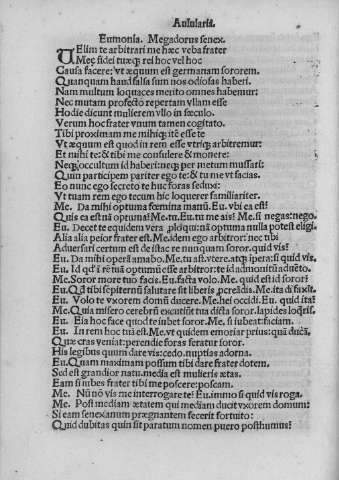 Aulularia.
Eumonia. Megadorus senex.
VElim te arbitrari me hæc verba frater
Meę fidei tuæq; rei hoc vel hoc
Causa facere: vt æquum est germanam sororem.
Quanquam haud falsa sum nos odiosas haberi.
Nam multum loquaces merito omnes habemur:
Nec mutam profecto repertam vllam esse
Hodie dicunt mulierem vllo in sæculo.
Verum hoc frater vnum tamen cogitato.
Tibi proximam me mihiq; itē esse te
Vt æquum est quod in rem esse vtriq; arbitremur:
Et mihi te: & tibi me consulere & monere:
Neq; occultum id haberi: neq; per metum mussari:
Quin participem pariter ego te: & tu me vt facias.
Eo nunc ego secreto te huc foras seduxi:
Vt tuam rem ego tecum hic loquerer familiariter.
Me. Da mihi optuma fœmina manū. Eu. vbi ea est?
Quis ea est nā optuma? Me. tu. Eu. tu me ais? Me. si negas: nego.
Eu. Decet te equidem vera ploqui: nā optuma nulla potest eligi.
Alia alia peior frater est. Me. idem ego arbitror: nec tibi
Aduersari certum est de istac re nunquam soror. quid vis?
Eu. Da mihi operā amabo. Me. tu ast. vtere. atq; ipera: si quid vis.
Eu. Id qd' i rē tuā optumū esse arbitror: te id admonitū aduēto.
Me. Soror more tuo facis. Eu. facta volo. Me. quid est id soror?
Eu. Qd tibi sepiternū salutare sit liberis pcreādis. Me. ita dī faxīt.
Eu. Volo te vxorem domū ducere. Me. hei occidi. Eu. quid ita?
Me. Quia misero cerebrū excutiūt tua dicta soror. lapides lóqris.
Eu. Eia hoc face quod te iubet soror. Me. si iubeat: faciam.
Eu. In rem hoc tuā est. Me. vt quidem emoriar prius: quā ducā.
Quæ cras veniat: perendie foras feratur soror.
His legibus quam dare vis: cedo. nuptias adorna.
Eu. Quam maximam possum tibi dare frater dotem.
Sed est grandior natu. media est mulieris ætas.
Eam si iubes frater tibi me poscere: poscam.
Me. Nū nō vis me interrogare te? Eu. immo si quid vis roga.
Me. Post mediam ætatem qui mediam ducit vxorem domum:
Si eam senex anum prægnantem fecerit fortuito:
Quid dubitas quin sit paratum nomen puero posthumus?